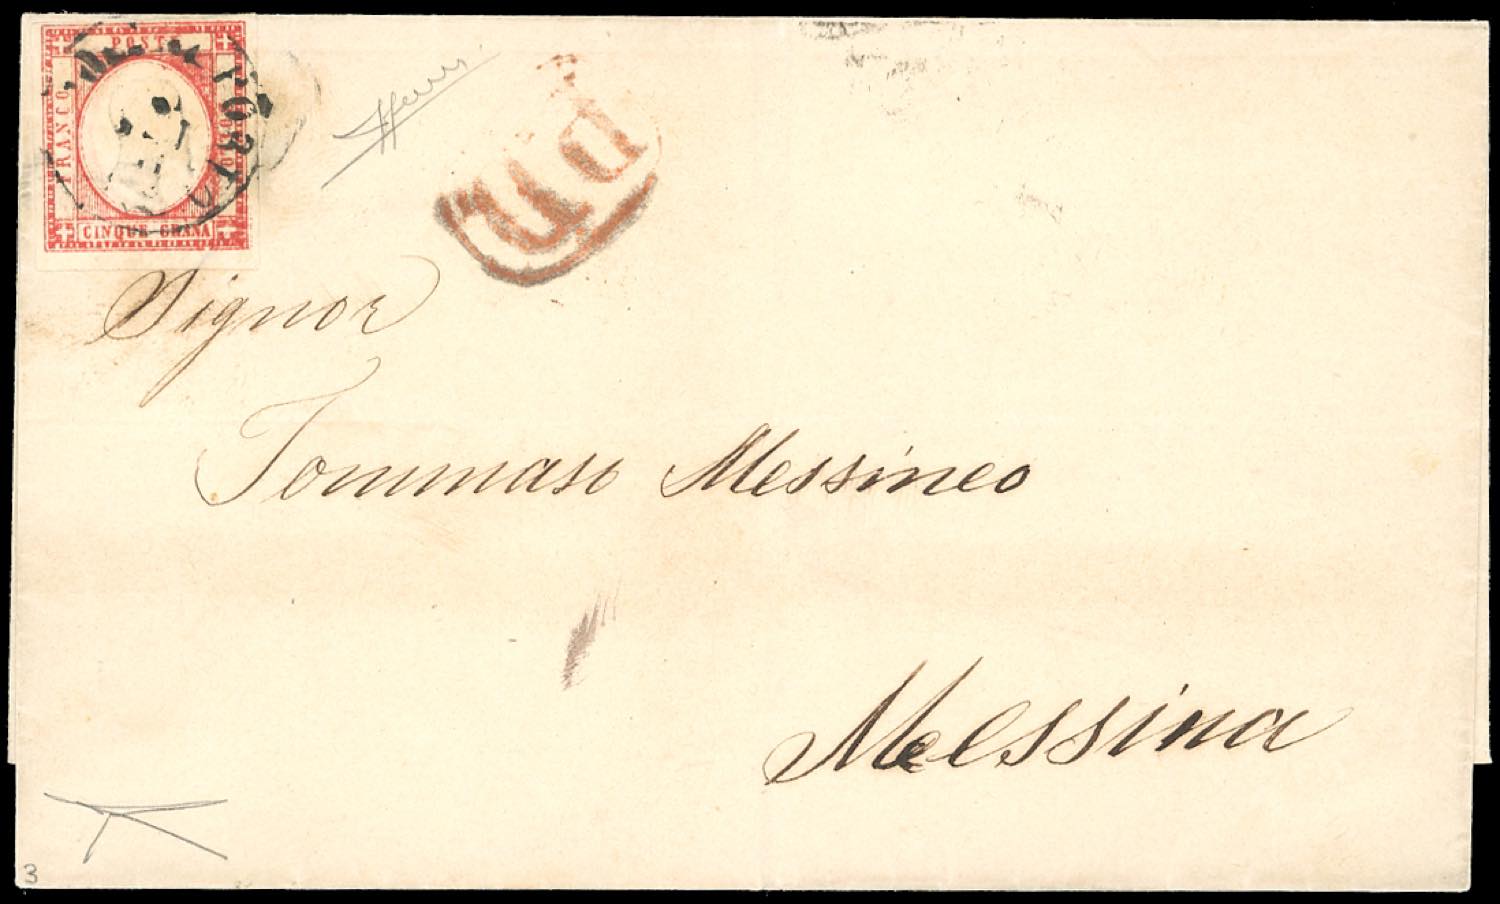 POSTA
FRANCO
BOLLO
CINQUE GRANA
PD
Signor
Tommaso Messineo
Messina
3